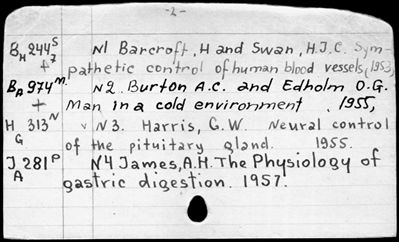 -2-
BH 244 S+7 N1 Barcroft, H and Swan, H.J.C. Sym-
pathetic control of human blood vessels, (1953)
BA 974 M.+ N2. Burton A.C. and Edholm O.G.
Man in a cold environment. 1955,
HG 313 N v N3. Harris, G.W. Neural control
of the pituitary gland. 1955.
JA 281 P N4 James, A.H. The Physiology of
gastric digestion. 1957.